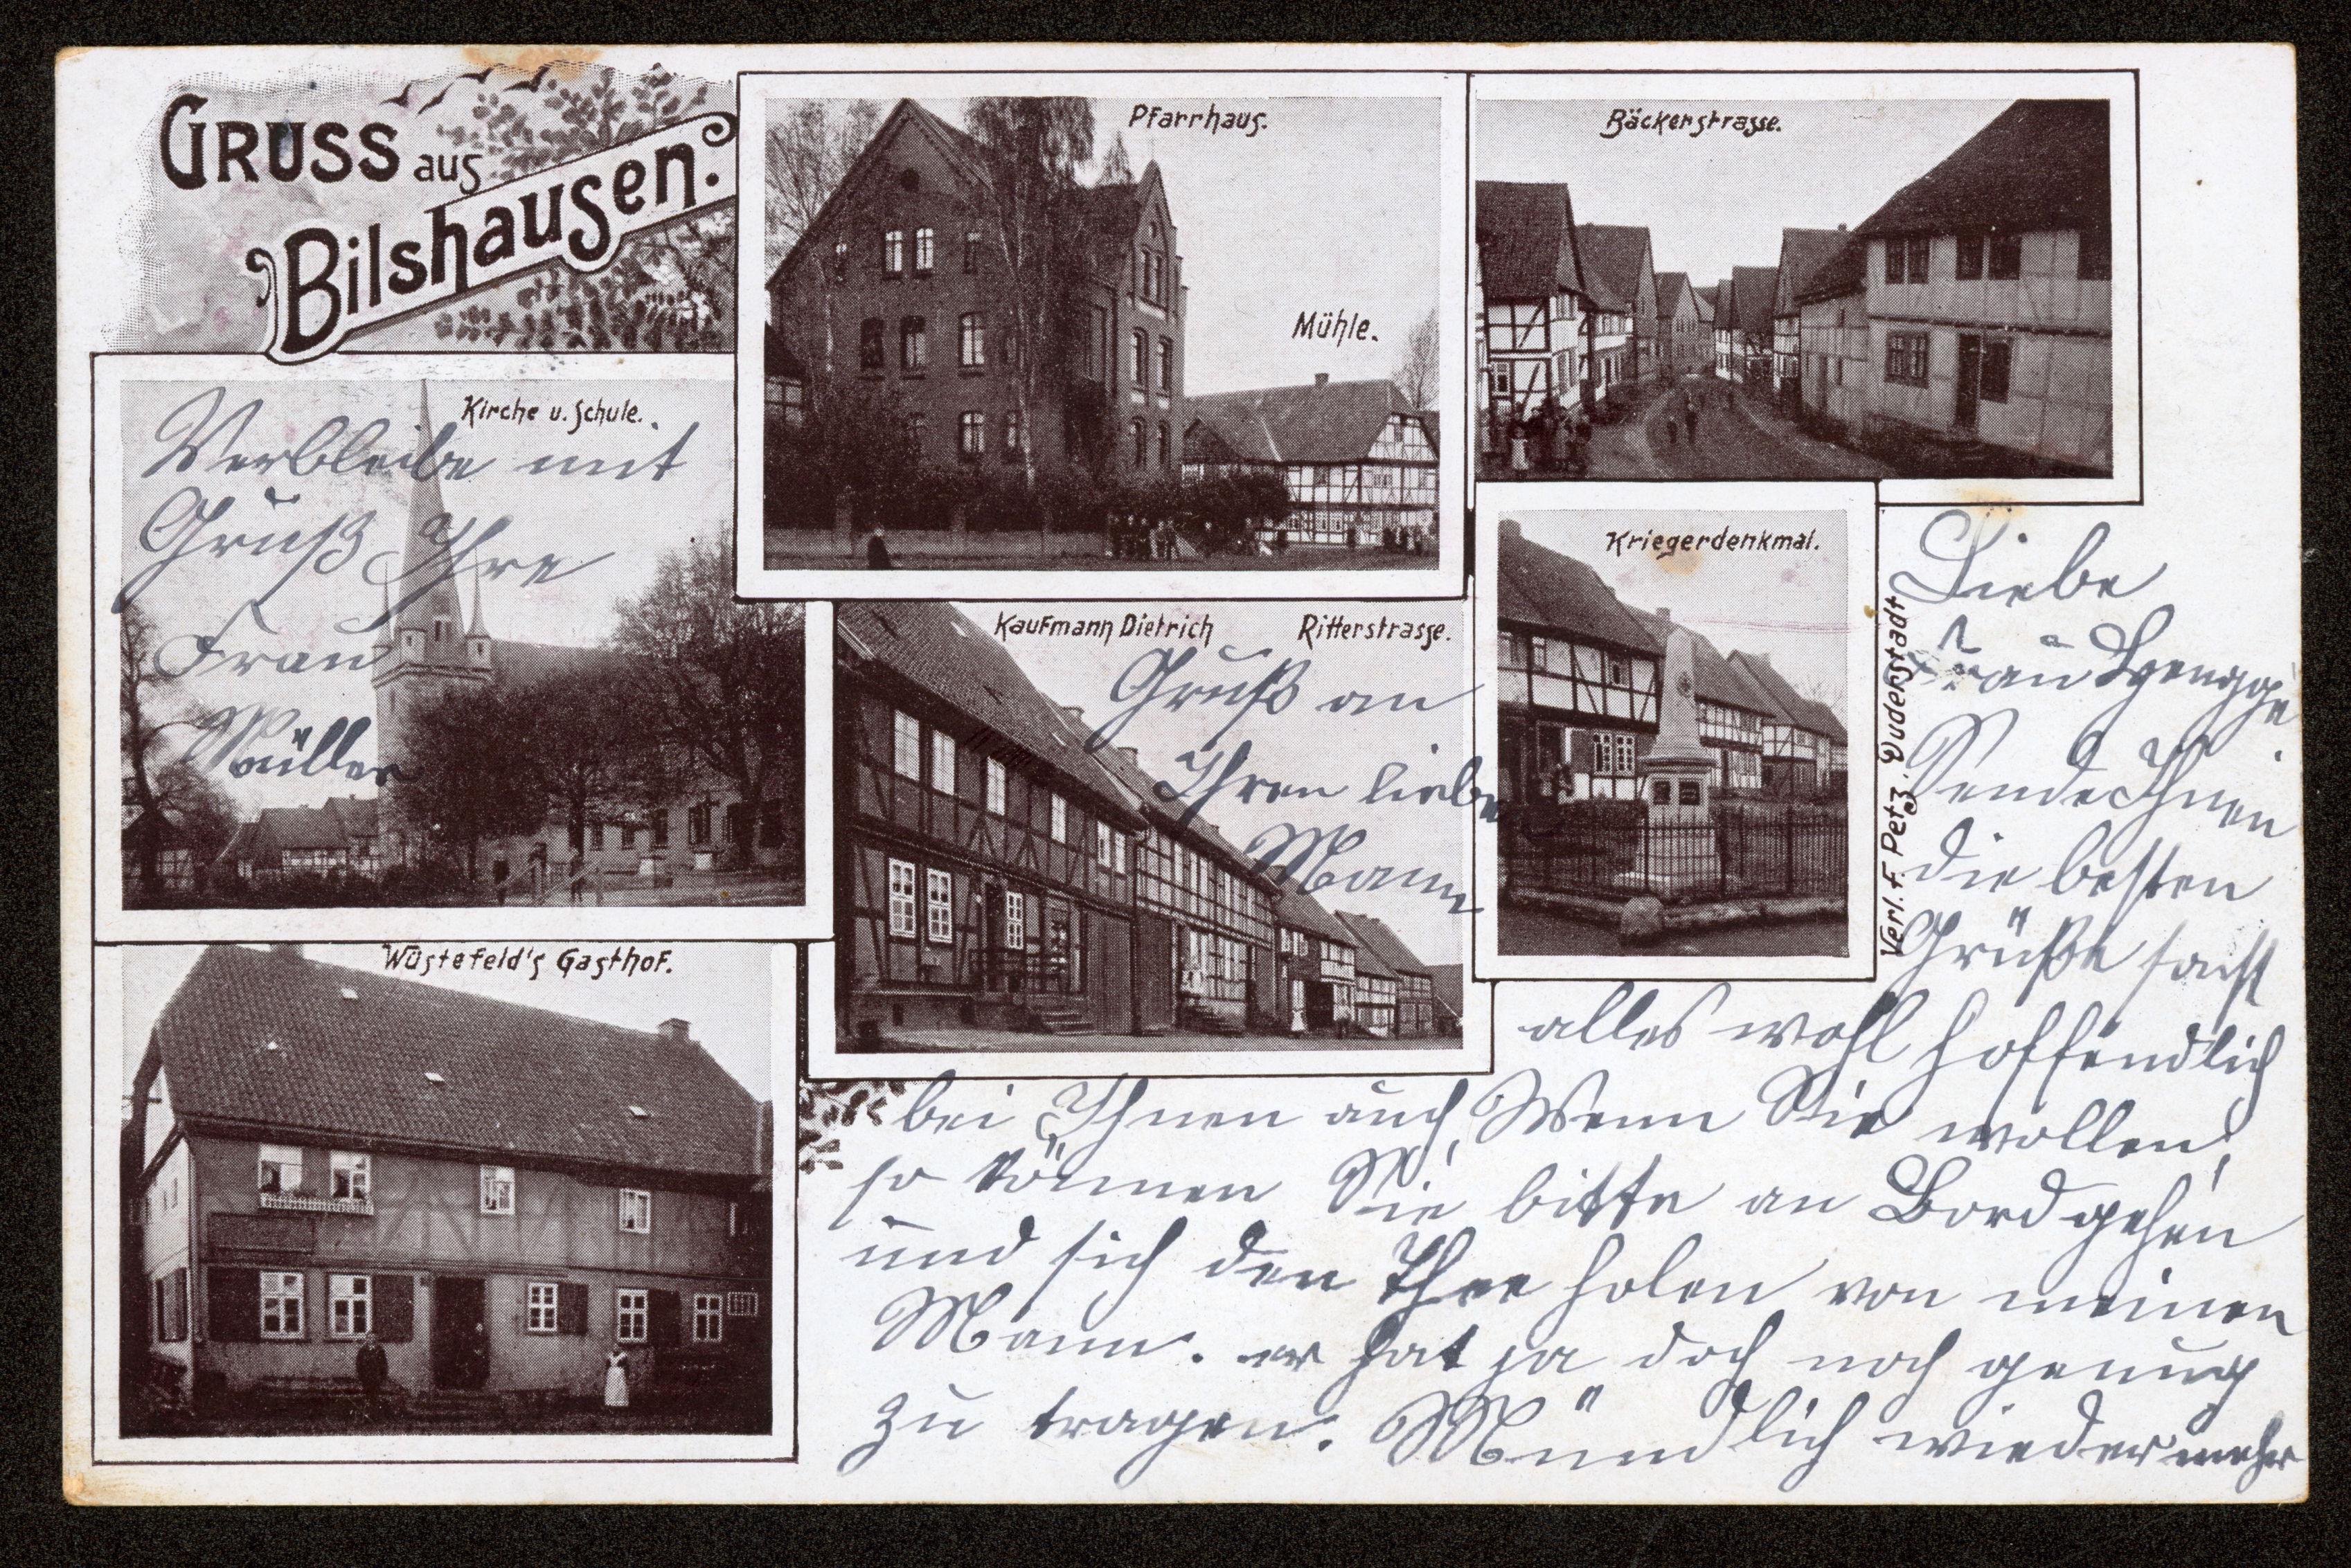 GRUSS aus
Bilshausen.
Pfarrhaus.
Mühle.
Bäckerstrasse.
Kirche u. Schule.
Kriegerdenkmal.
Kaufmann Dietrich Ritterstrasse.
Wüstefeld's Gasthof.
Verl. F. Petz, Duderstadt
Liebe
Frau
Sende Ihnen
die besten
Grüße sonst
alles wohl hoffendlich
bei Ihnen auch, Wenn Sie wollen,
so können Sie bitte an Bord gehen
und sich den Thee holen von meinen
Mann. er hat ja doch noch genug
zu tragen. Mündlich wieder mehr
Verbleibe mit
Gruß Ihre
Frau
Müller
Gruß an
Ihren lieben
Mann